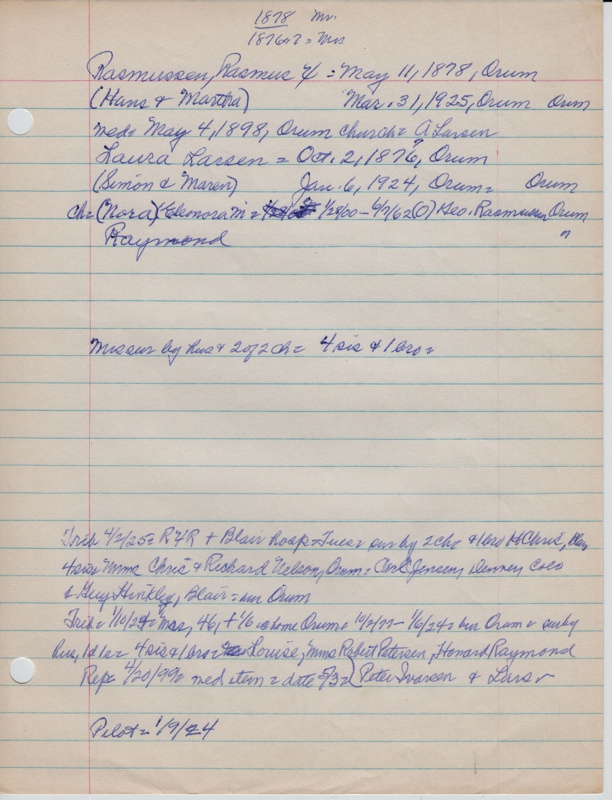 1878 Mr.
1876 or 7 = Mrs
Rasmussen, Rasmus = May 11, 1878, Orum
(Hans & Martha) Mar. 31, 1925, Orum Orum
med= May 4, 1898, Orum church= A Larsen
Laura Larsen = Oct. 2, 1876?, Orum
(Simon & Maren) Jan. 6, 1924, Orum= Orum
ch= (Nora) Eleonora M = 1/28/00 - 6/2/62 (O) Geo. Rasmussen, Orum
Raymond "
Mrs sur by hus & 2 of 2 ch = 4 sis & 1 bro =
Trib 4/2/25= + Blair hosp = Tues = sur by 2 ch = & 1 bro Chris, Blair
4 sis= Mmes Chris & Richard Nelson, Orum= Carl Jensen, Denver, Colo
& Guy Hinkley, Blair = bur Orum
Trib= 1/10/24= Mrs, 46, + 1/6 = home Orum = 10/2/77 - 1/6/24= bur Orum = sur by
hus, 1 d 1 s = 4 sis & 1 bro = Louise, Mmes Robert Petersen, Howard Raymond
Rep= 4/20/99= med item = date 5/3=) Peter Ivarsen & Lars
Pilot = 1/9/24